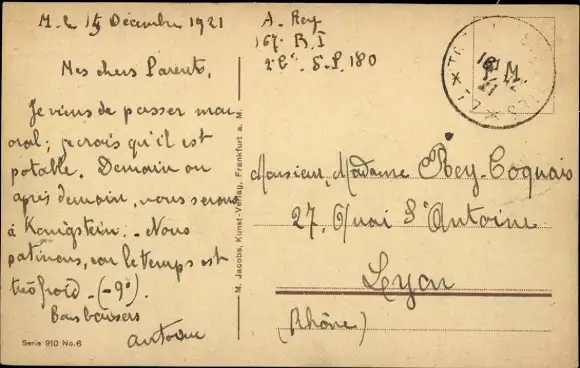 M. le 15 Décembre 1921
Mes chers Parents,
Je viens de passer mon
oral; je crois qu'il est
potable. Demain ou
après demain, nous serons
à Kœnigstein. Nous
patinons, car le temps est
très froid. (-9°).
Bons baisers
Antoine
Serie 910 No. 6
M. Jacobs, Kunst-Verlag, Frankfurt a. M.
A. Rey
167e R.I
2e Cie S.P. 180
Monsieur, Madame Rey-Coquais
27, Quai St Antoine
Lyon
(Rhône)
F. M.